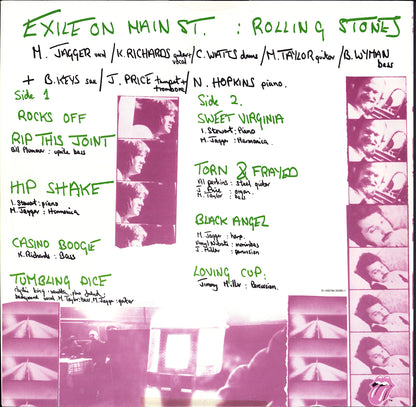 EXILE ON MAIN ST. : ROLLING STONES
M. JAGGER vocal / K. RICHARDS guitar vocal / C. WATTS drums / M. TAYLOR guitar / B. WYMAN bass
+ B. KEYS sax / J. PRICE trumpet & trombone / N. HOPKINS piano.
Side 1
ROCKS OFF
RIP THIS JOINT
Bill Plummer : uprite bass
HIP SHAKE
I. Stewart: piano
M. Jagger: Harmonica
CASINO BOOGIE
K. Richards: Bass
TUMBLING DICE
M. Taylor: bass, M. Jagger: guitar
Side 2.
SWEET VIRGINIA
I. Stewart: Piano
M. Jagger: Harmonica.
TORN & FRAYED
Al perkins: Steel guitar
J. Price: organ
M. Taylor: bass
BLACK ANGEL
M. Jagger: harp.
J. Miller: percussion
LOVING CUP:
Jimmy Miller: Percussion.